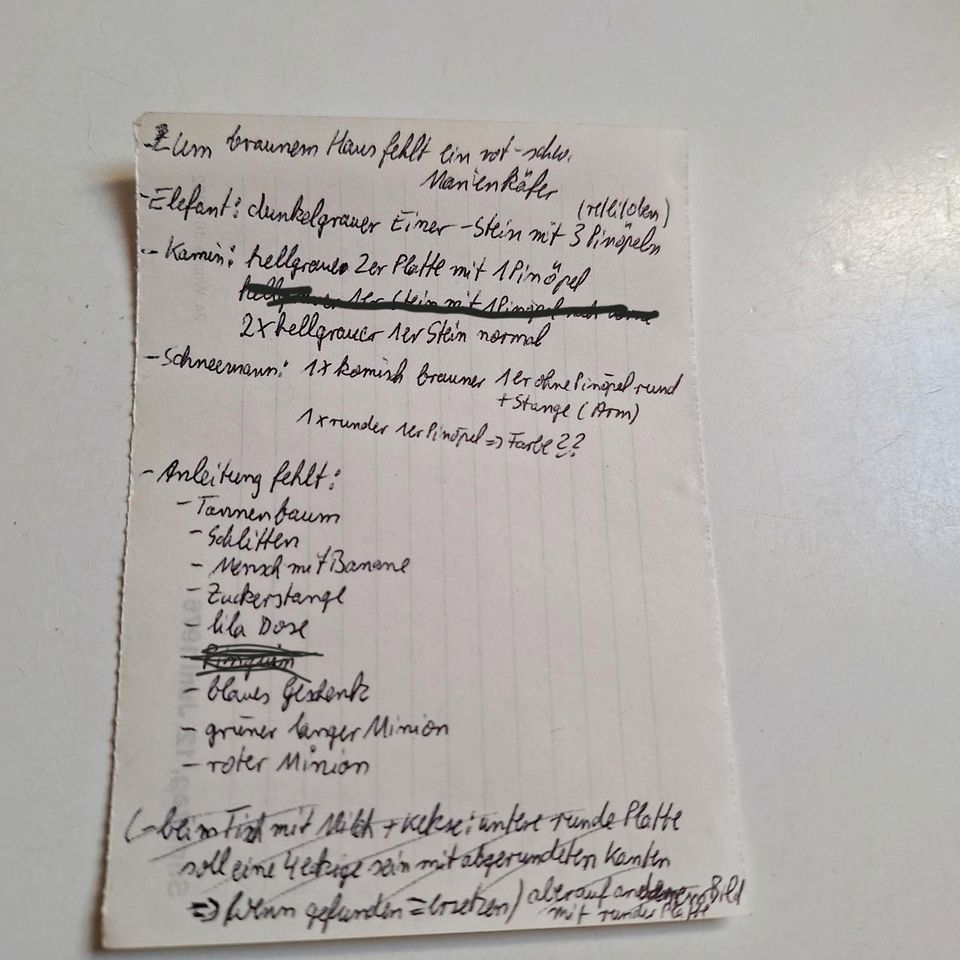 - Zum braunem Haus fehlt ein rot-schw.
Marienkäfer
- Elefant: dunkelgrauer Einer-Stein mit 3 Pinöpeln
(re/li/oben)
- Kamin: hellgraue 2er Platte mit 1 Pinöpel
hellgrauer 1er Stein mit 1 Pinöpel nach vorne
2x hellgrauer 1er Stein normal
- Schneemann: 1x komisch brauner 1er ohne Pinöpel rund
+ Stange (Arm)
1x runder 1er Pinöpel => Farbe??
- Anleitung fehlt:
- Tannenbaum
- Schlitten
- Mensch mit Banane
- Zuckerstange
- lila Dose
- Pinguin
- blaues Geschenk
- grüner langer Minion
- roter Minion
(- beim Tisch mit Milch + Kekse: untere runde Platte
soll eine 4eckige sein mit abgerundeten Kanten
=> Wenn gefunden = ersetzen) aber auf anderem Bild
mit runder Platte